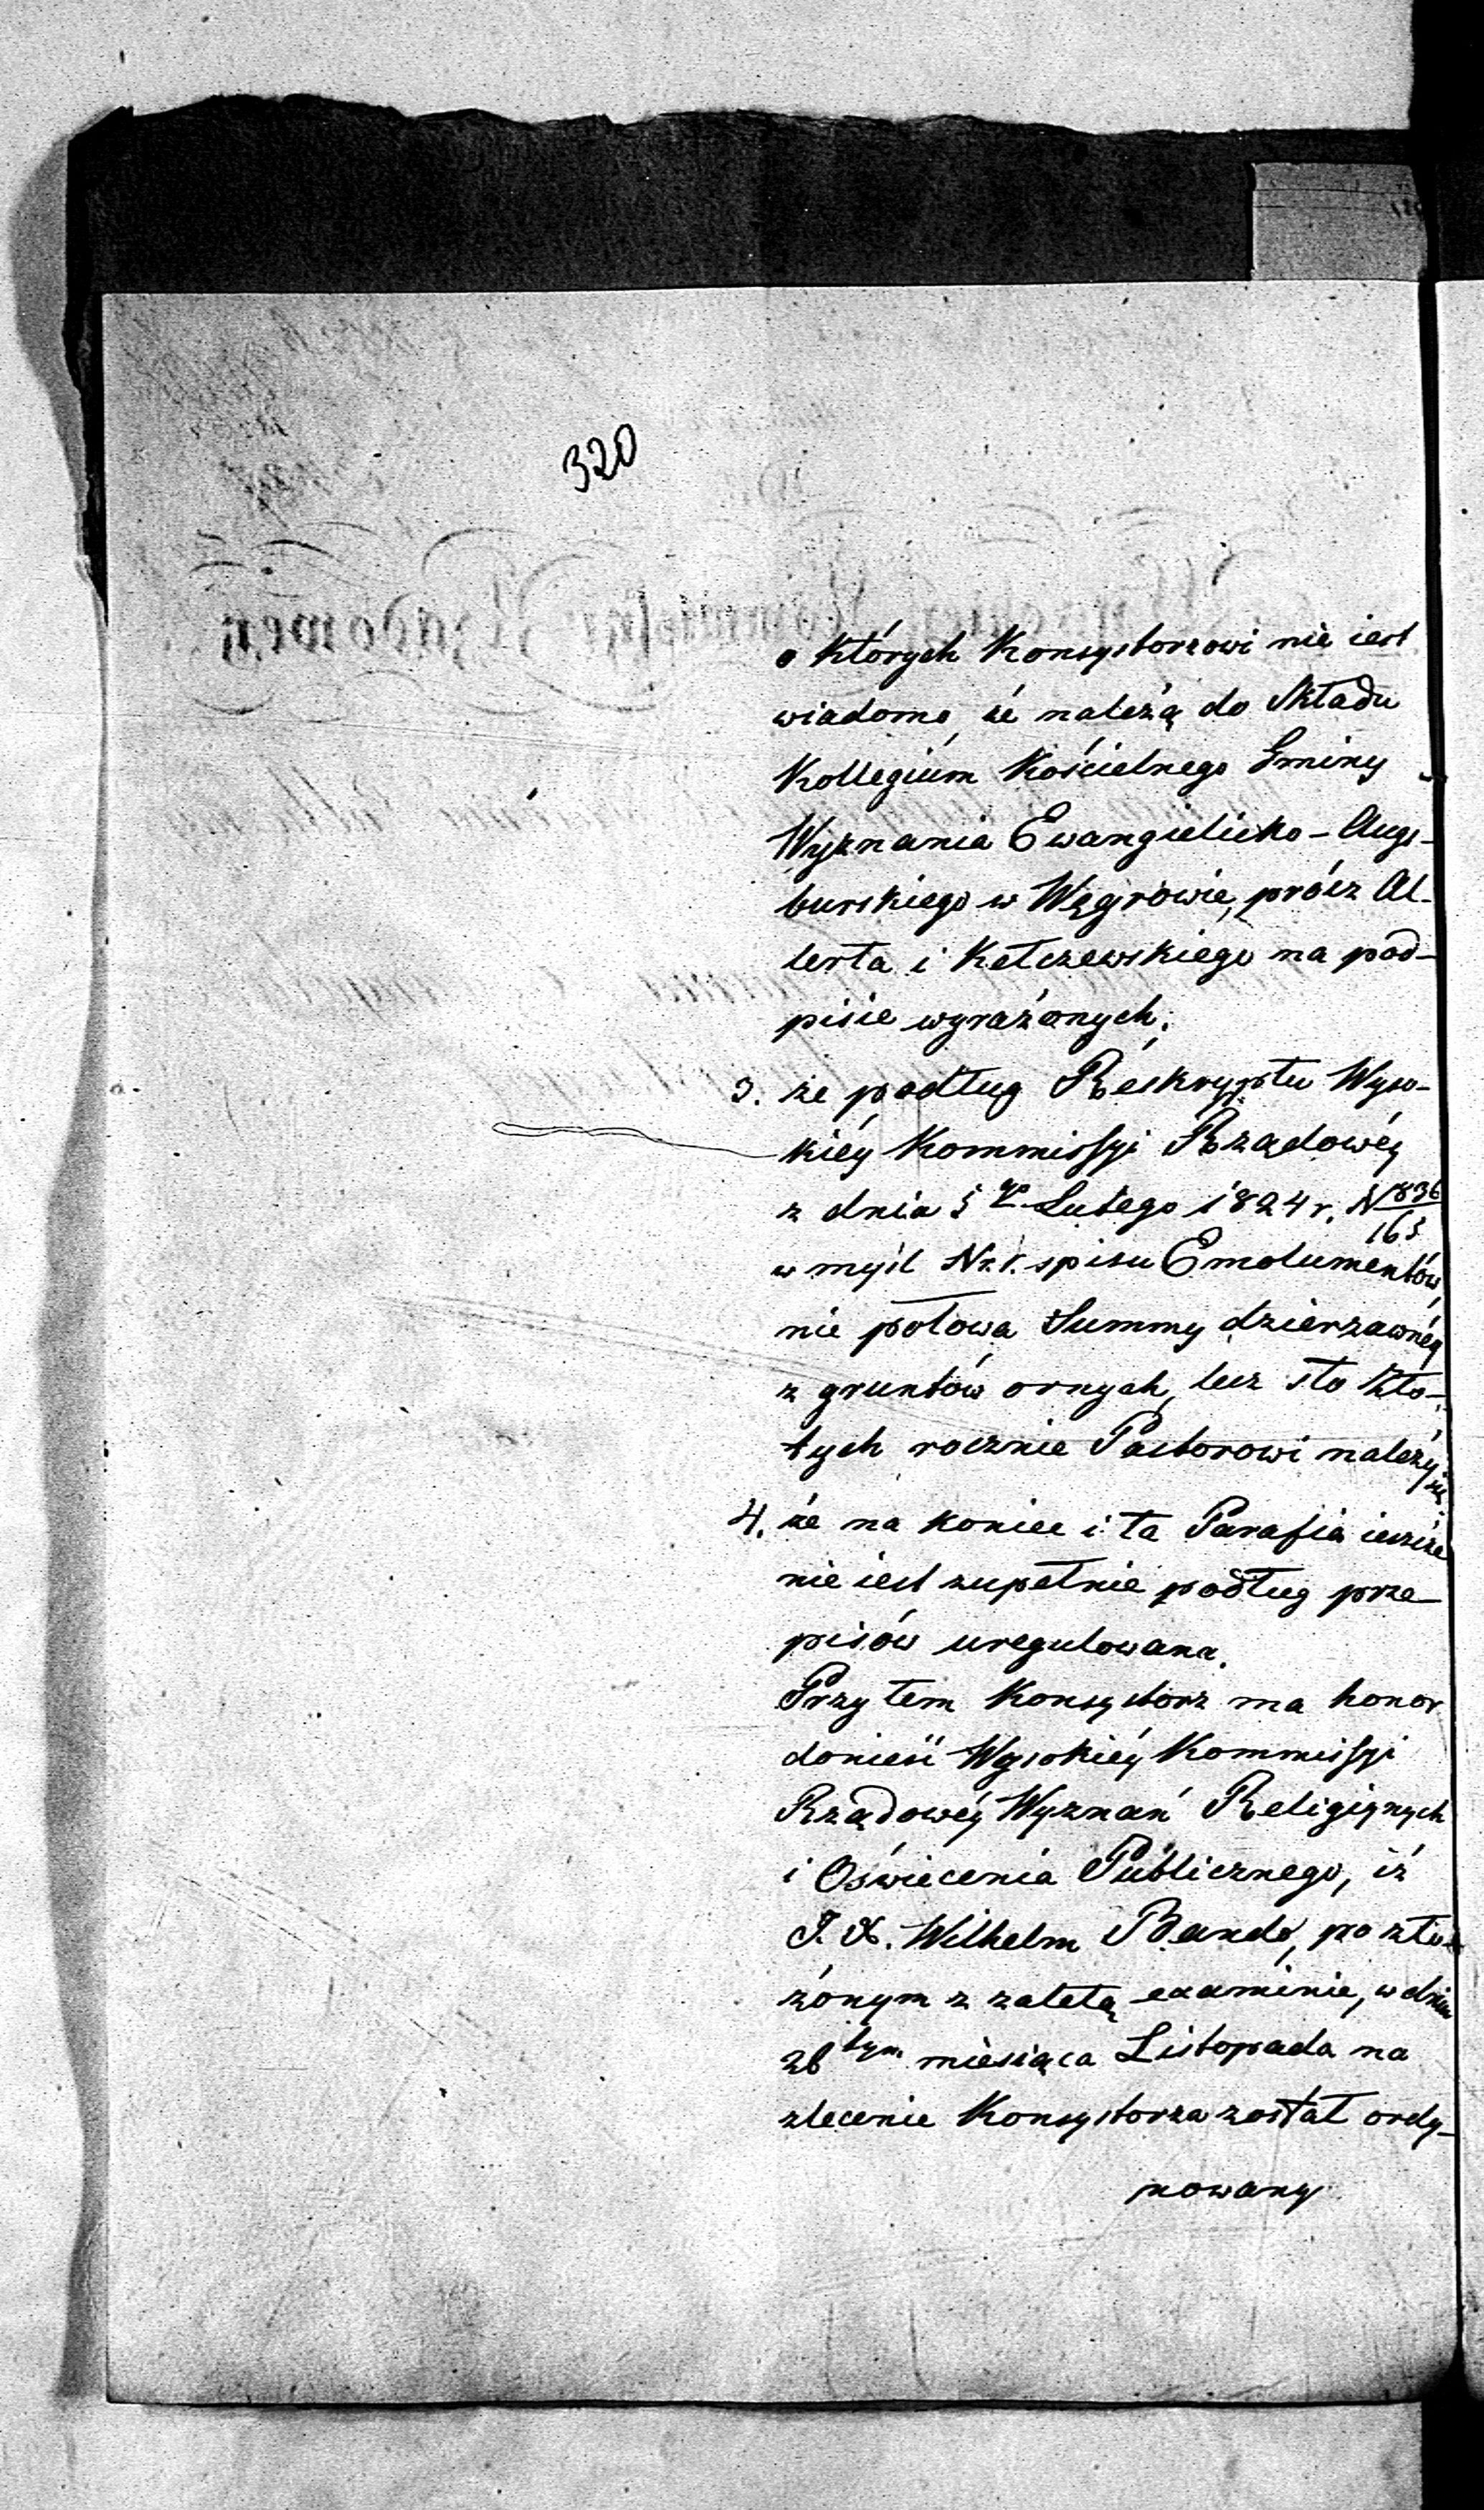 320
o których Konsystorzowi nie iest
wiadomo, że należą do Składu
Kollegium Kościelnego Gminy
Wyznania Ewangielicko-Augs-
burskiego w Węgrowie, prócz Al-
lerta i Kełczewskiego na pod-
pisie wyrażonych;
3. że podług Reskryptu Wyso-
kiéy Kommissyi Rządowéy
z dnia 5 go Lutego 1824 r. N 836/163
w myśl Nr. 1. spisu Emolumentów,
nie połowa Summy dzierzawnéy
z gruntów ornych, lecz sto Zło-
tych rocznie Pastorowi należy się
4. że na koniec i ta Parafia ieszcze
nie iest zupełnie podług prze-
pisów uregulowana.
Przytem Konsystorz ma honor
donieść Wysokiéy Kommissyi
Rządowéy Wyznań Religiynych
i Oświecenia Publicznego, iż
J. X. Wilhelm Bando, po zło-
żonym z zaletą examinie, w dniu
26 tym miesiąca Listopada na
zlecenie Konsystorza został ordy-
nowany